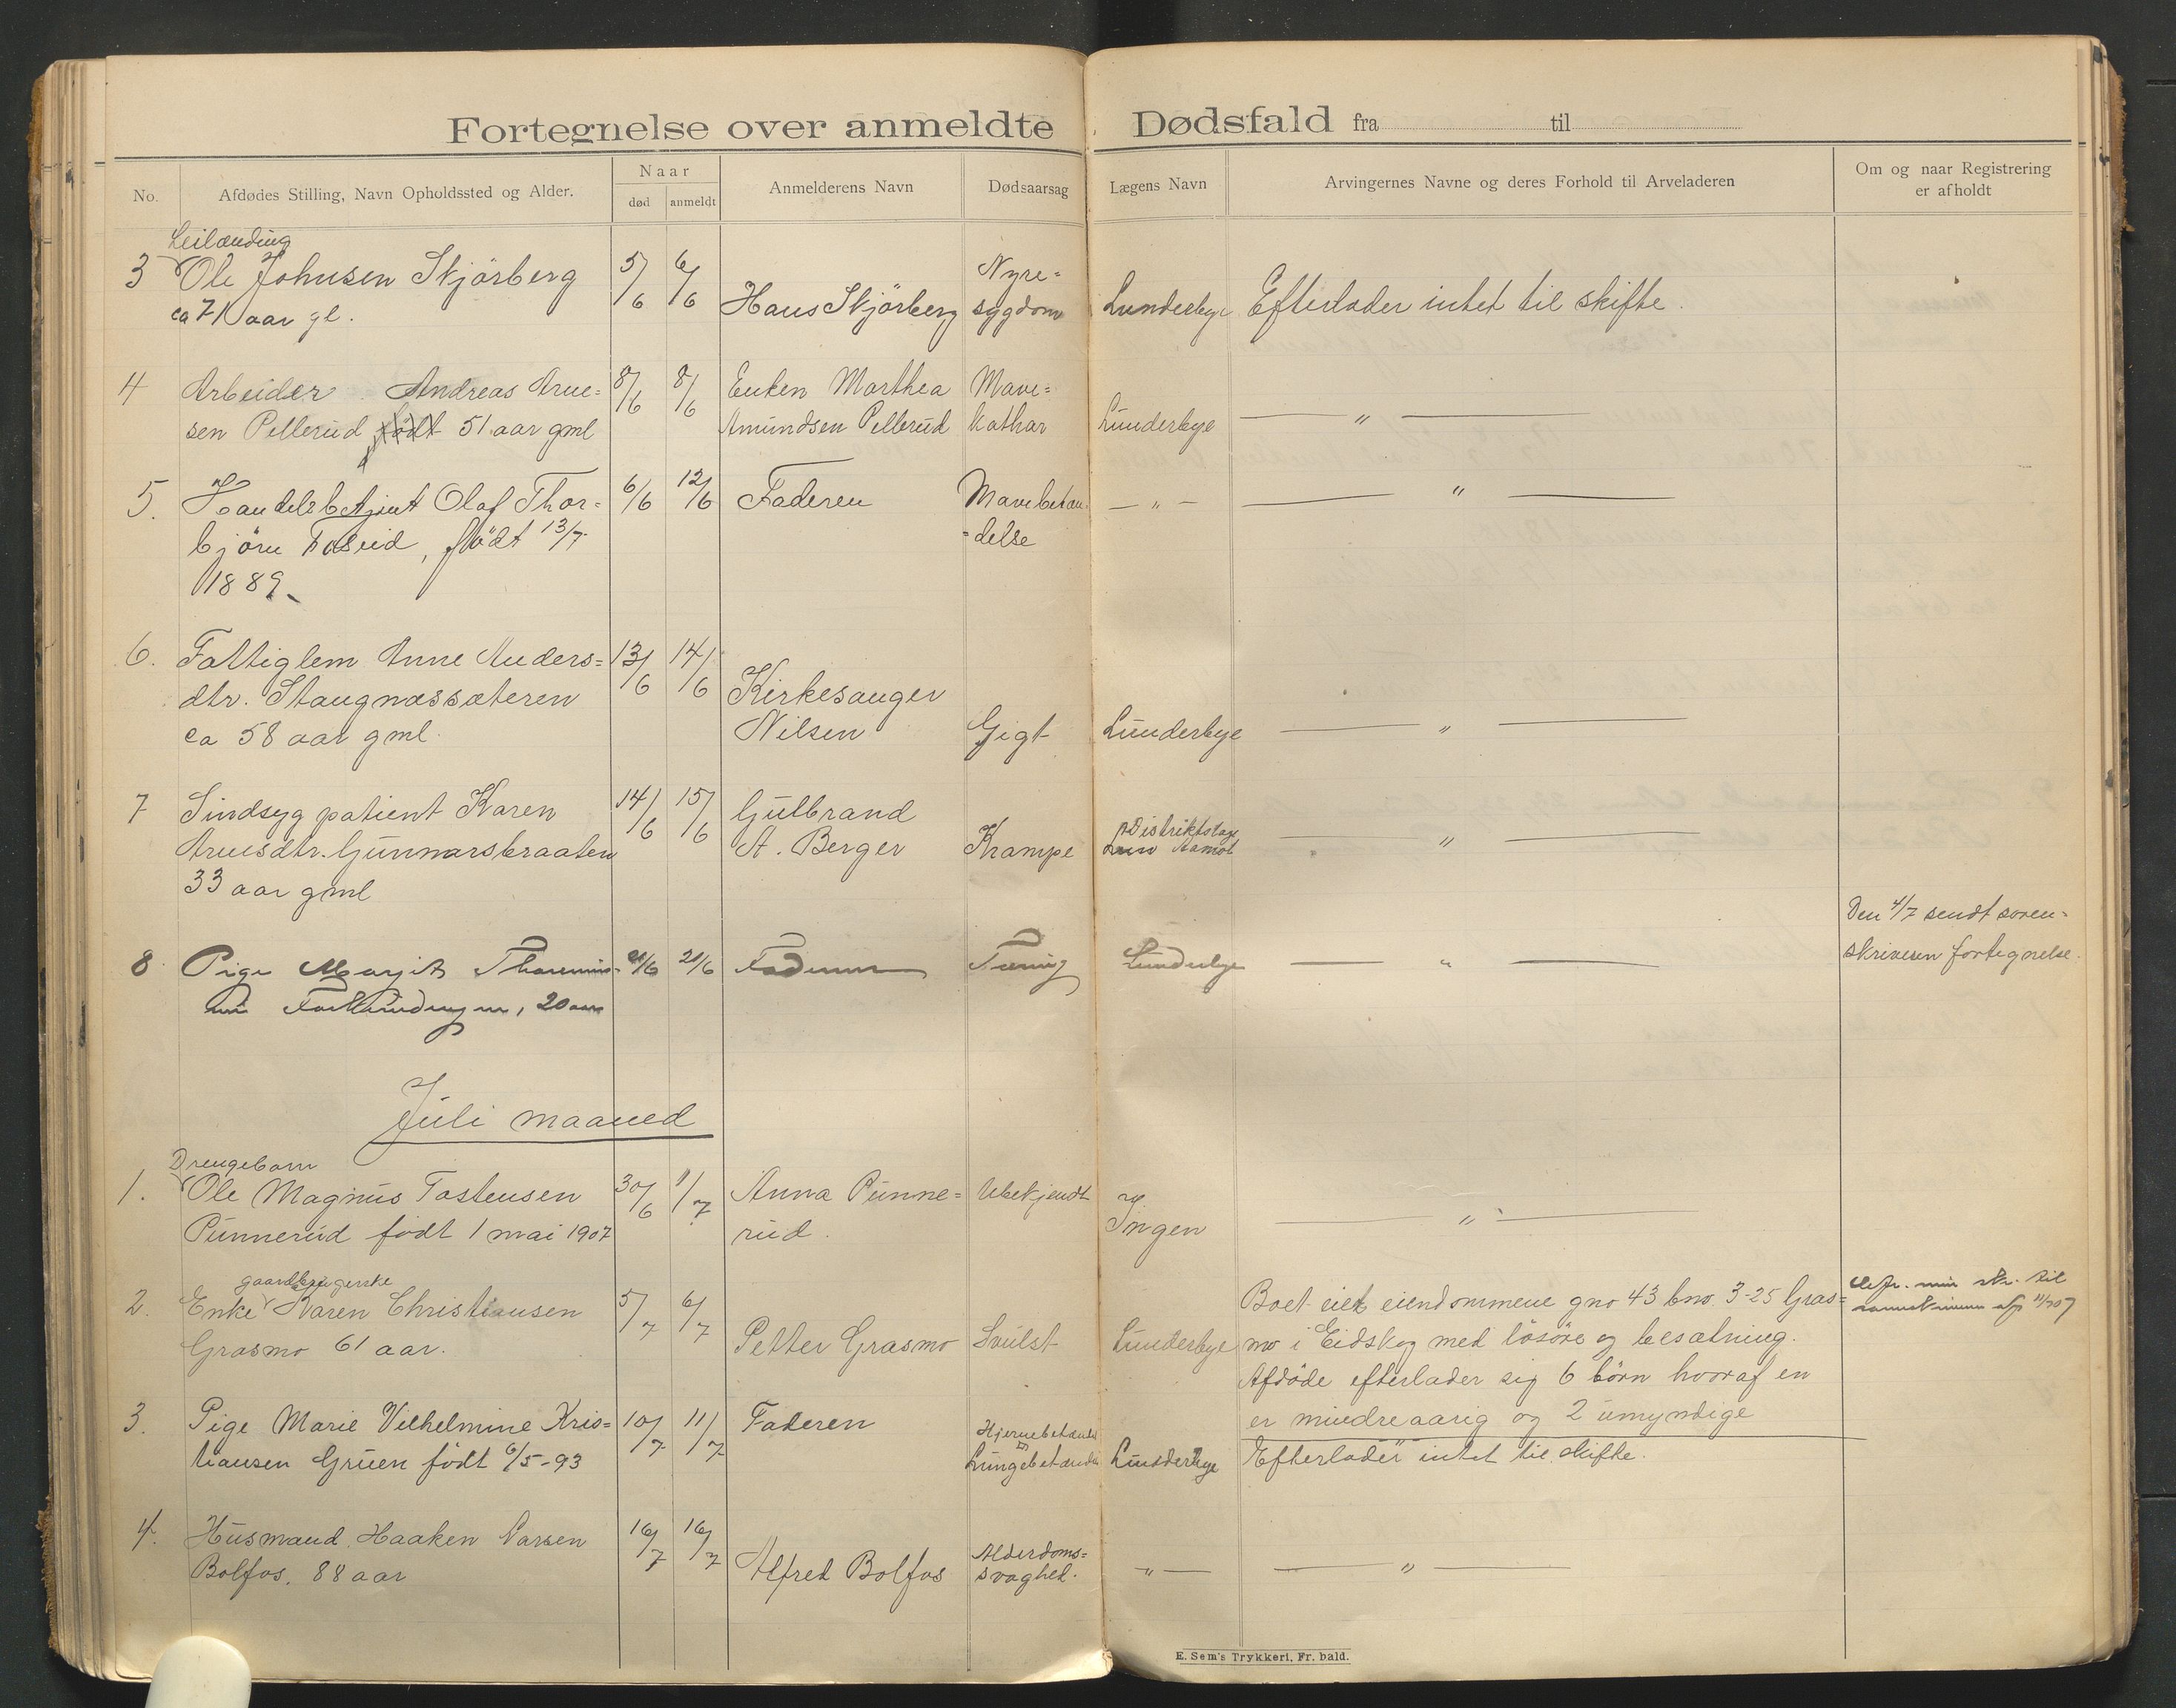 Fortegnelse over anmeldte Dødsfald fra til
No.
Afdødes Stilling, Navn Opholdssted og Alder.
Naar
død
anmeldt
Anmelderens Navn
Dødsaarsag
Lægens Navn
Arvingernes Navne og deres Forhold til Arveladeren
Om og naar Registrering
er afholdt
Leilænding
3 Ole Johnsen Skjörberg 5/6 6/6
ca 71 aar gl.
Hans Skjörberg
Nyre=
sygdom
Lunderbye
Efterlader intet til skifte.
4 Arbeider Andreas Arne= 8/6 8/6
sen Pellerud födt 51 aar gml
Enken Marthea
Amundsen Pellerud
Mave=
kathar
Lunderbye
— " —
5. Handelsbetjent Olaf Thor= 6/6 12/6
björn , födt 13/7
1889
Faderen
Mavebetæn=
=delse
— " —
— " —
6. Fattiglem Anne Anders= 13/6 14/6
dtr. Stangnæssæteren
ca 58 aar gml.
Kirkesanger
Nilsen
Gigt
Lunderbye
— " —
7 Sindsyg patient Karen 14/6 15/6
Arnesdtr. Gunnarsbraaten
33 aar gml
Gulbrand
A. Berger
Krampe
Distriktslæge
Aamot
— " —
8 Pige Margit 21/6 21/6
20 aar
Faderen
Tæring
Lunderbye
— " —
Den 4/7 sendt soren=
skriveren fortegnelse.
Juli maaned
Drengebarn
1. Ole Magnus Tostensen 30/6 1/7
Punnerud födt 1 mai 1907
Anna Punne=
rud.
Ubekjendt
Ingen
— " —
gaardbrugerske
2. Enke Karen Christiansen 5/7 6/7
Grasmo 61 aar.
Petter Grasmo
Svulst
Lunderbye
Boet eier eiendommene gno 43 bno. 3-25 Gras=
mo i Eidskog med lösöre og besætning.
Afdöde efterlader sig 6 börn hvoraf en
er mindreaarig og 2 umyndige
min skr. til
11/7 07
3. Pige Marie Vilhelmine Kris= 10/7 11/7
tiansen Gruen födt 6/5-93
Faderen
Hjernebetændelse
Lungebetændelse
Lunderbye
Efterlader intet til skifte.
4. Husmand Haaken Larsen 16/7 16/7
Bolfos. 88 aar
Alfred Bolfos
Alderdoms=
svaghed.
— " —
— " —
E. Sem's Trykkeri, Fr. hald.